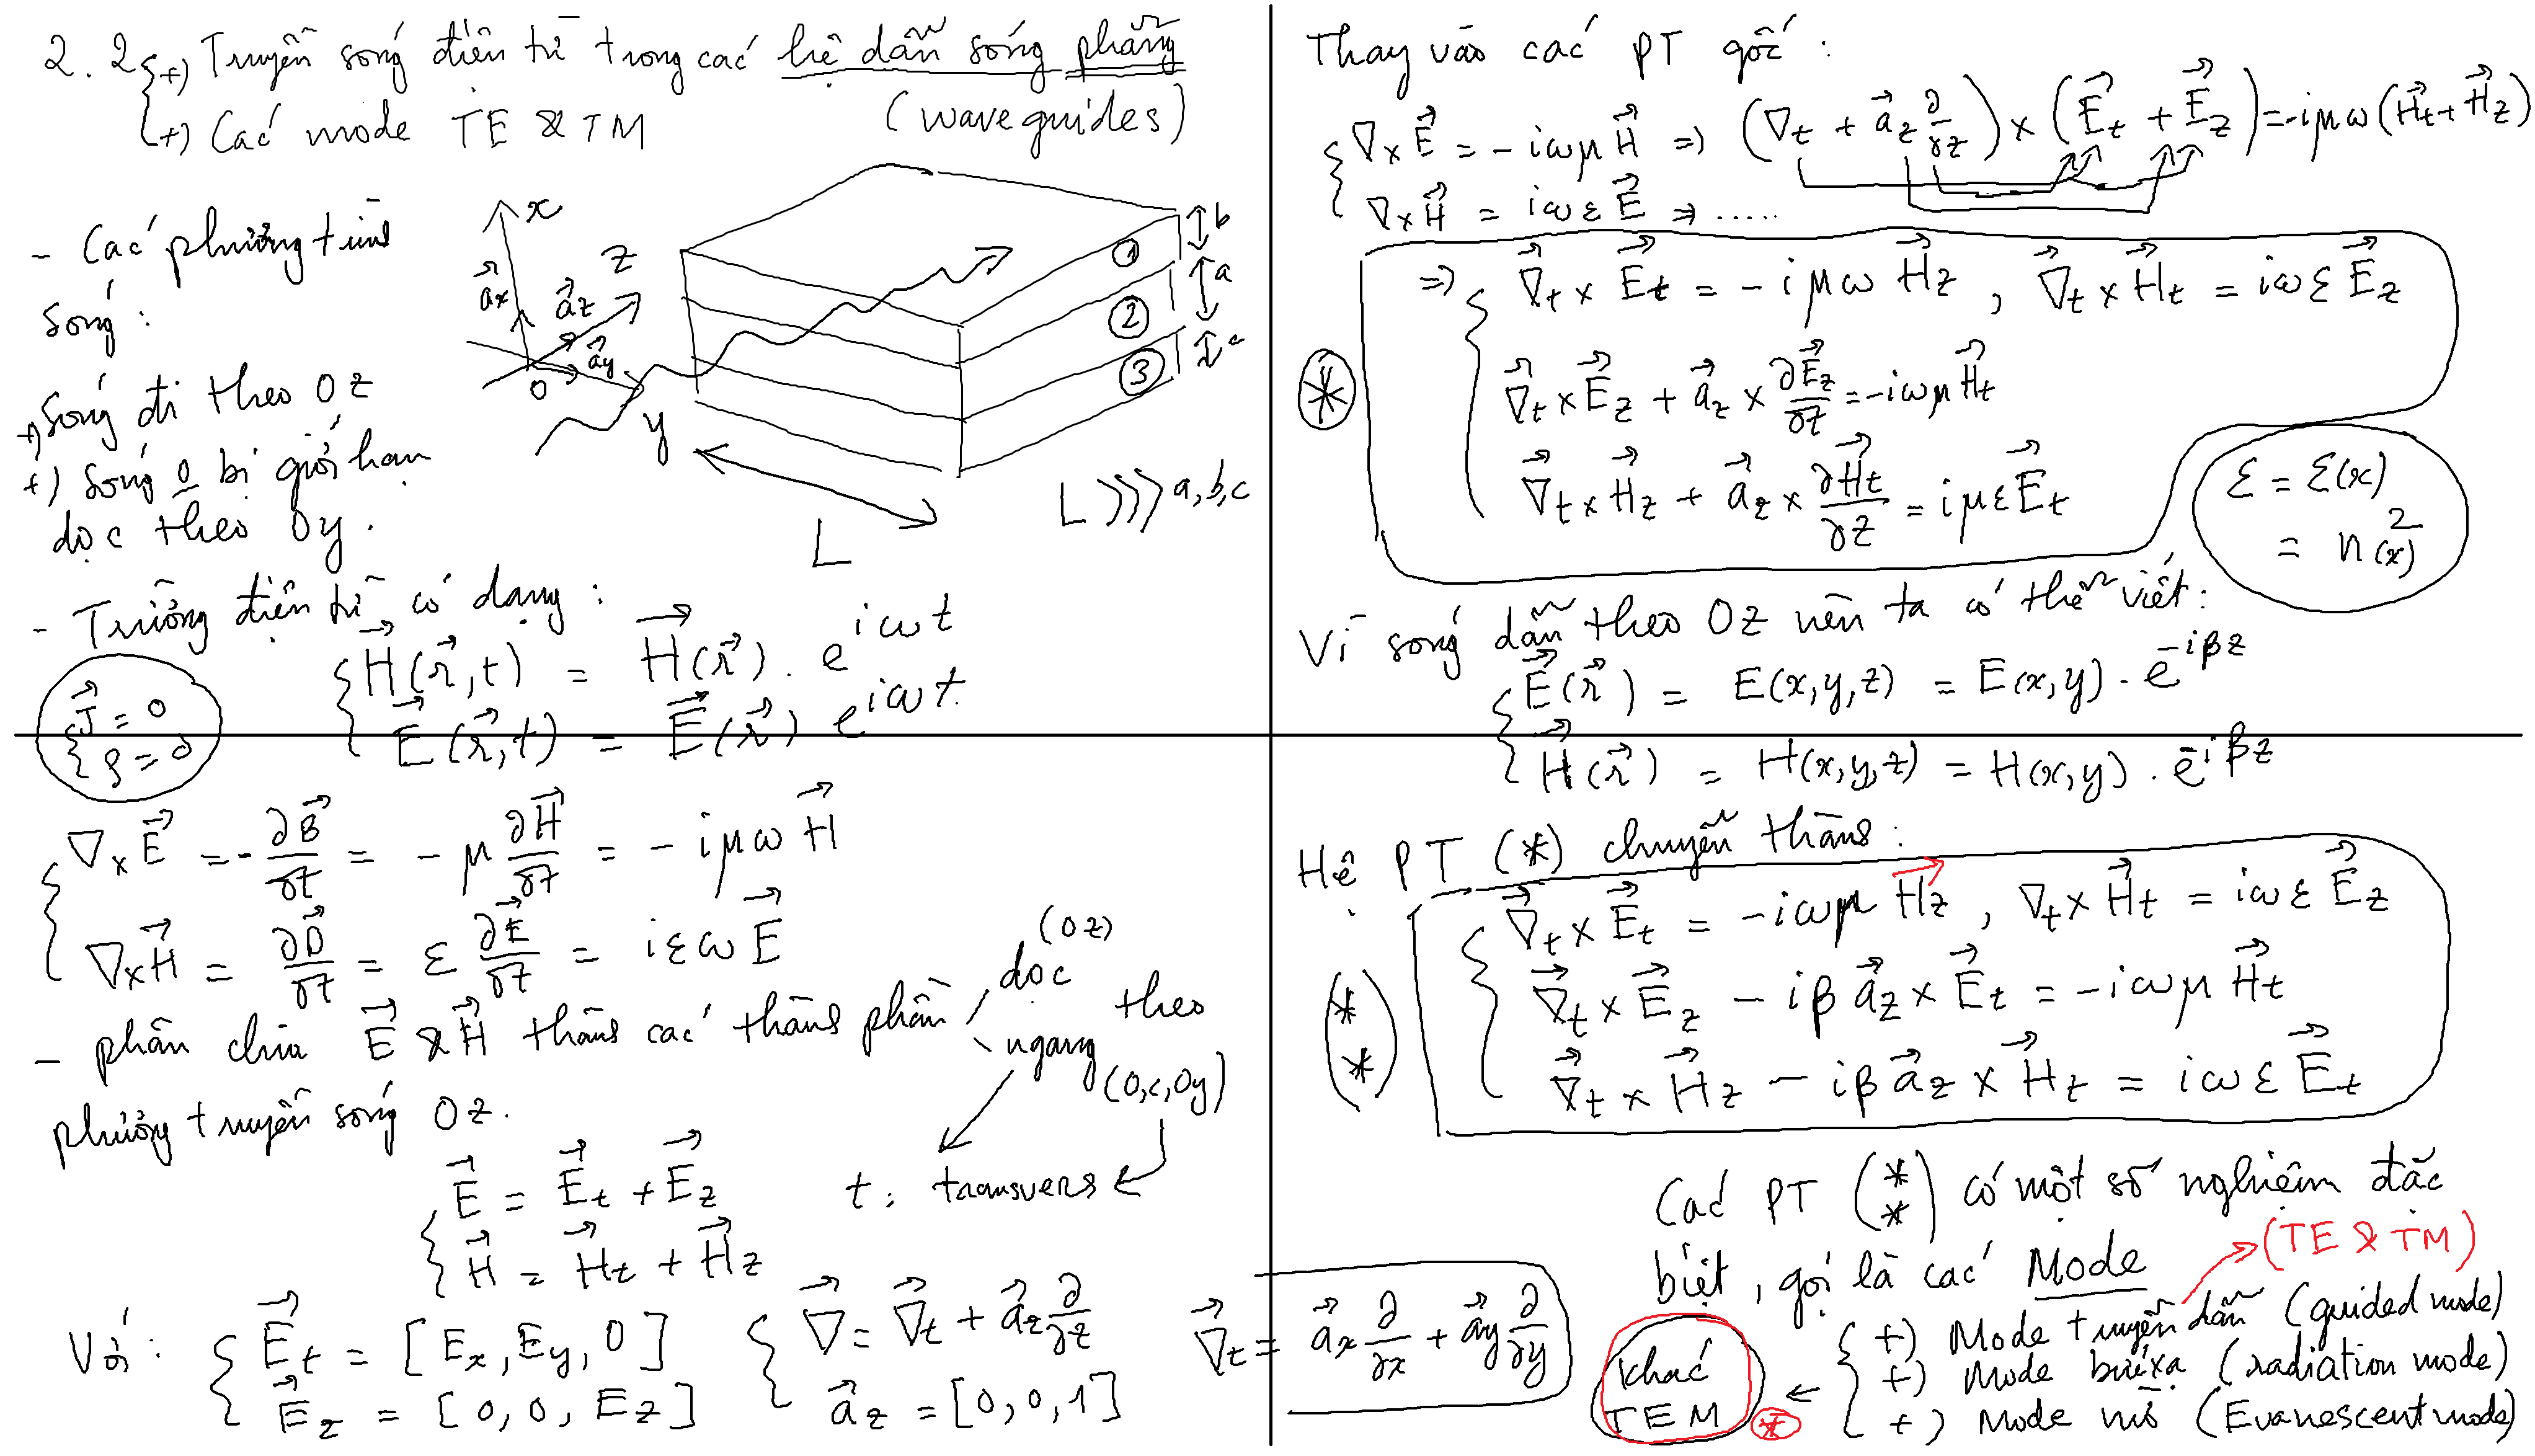 2.2 +) Truyền sóng điện từ trong các hệ dẫn sóng phẳng
+) Các mode TE & TM (waveguides)
- Các phương trình
sóng:
+) Sóng đi theo Oz
+) Sóng o bị giới hạn
dọc theo Oy.
x
z
y
0
a⃗x
a⃗z
a⃗y
① ② ③
b
a
c
L
L ⟩⟩⟩ a,b,c
- Trường điện từ có dạng:
H⃗(r⃗,t) = H⃗(r⃗). e^{iωt}
E⃗(r⃗,t) = E⃗(r⃗) e^{iωt}
J⃗ = 0
ρ = 0
∇×E⃗ = -∂B⃗/∂t = -μ ∂H⃗/∂t = -iμωH⃗
∇×H⃗ = ∂D⃗/∂t = ε ∂E⃗/∂t = iεωE⃗
- phân chia E⃗ & H⃗ thành các thành phần dọc (Oz) ngang (0x,0y) theo
phương truyền sóng Oz.
E⃗ = E⃗t + E⃗z
H⃗ = H⃗t + H⃗z
t: transvers
Với: E⃗t = [Ex, Ey, 0]
E⃗z = [0, 0, Ez]
∇⃗ = ∇⃗t + a⃗z ∂/∂z
a⃗z = [0,0,1]
∇⃗t = a⃗x ∂/∂x + a⃗y ∂/∂y
Thay vào các PT gốc:
∇×E⃗ = -iωμH⃗ ⇒ (∇t + a⃗z ∂/∂z) × (E⃗t + E⃗z) = -iμω(H⃗t + H⃗z)
∇×H⃗ = iωεE⃗ ⇒ .....
⇒ ∇⃗t × E⃗t = -iμωH⃗z, ∇⃗t × H⃗t = iωεE⃗z
(*) ∇⃗t × E⃗z + a⃗z × ∂E⃗z/∂z = -iωμH⃗t
∇⃗t × H⃗z + a⃗z × ∂H⃗t/∂z = iμεE⃗t
ε = ε(x)
= n²(x)
Vì sóng dẫn theo Oz nên ta có thể viết:
E⃗(r⃗) = E(x,y,z) = E(x,y). e^{-iβz}
H⃗(r⃗) = H(x,y,z) = H(x,y). e^{-iβz}
Hệ PT (*) chuyển thành:
∇⃗t × E⃗t = -iωμH⃗z, ∇t × H⃗t = iωεE⃗z
(**) ∇⃗t × E⃗z - iβa⃗z × E⃗t = -iωμH⃗t
∇⃗t × H⃗z - iβa⃗z × H⃗t = iωεE⃗t
Các PT (**) có một số nghiệm đặc
biệt, gọi là các Mode
(TE & TM)
+) Mode truyền dẫn (guided mode)
+) Mode bức xạ (radiation mode)
+) Mode mờ (Evanescent mode)
khác
TEM
*